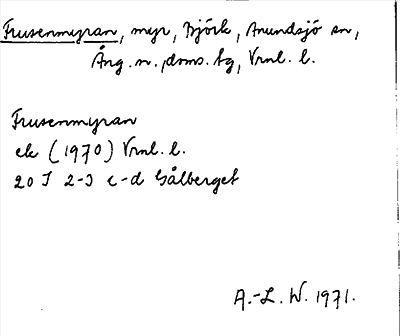 Frusenmyran, myr, Björk, Anundsjö sn,
Ång. n. doms. tg, Vrnl. l.
Frusenmyran
ek (1970) Vrnl. l.
20 I 2-3 c-d Gålberget
A.-L. W. 1971.